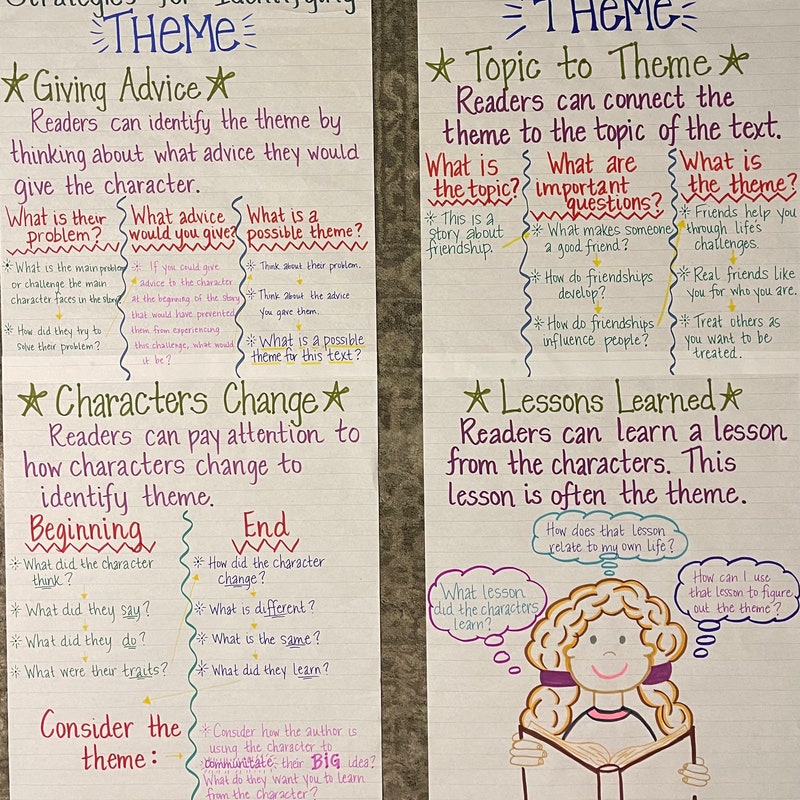 Strategies for Identifying
THEME
Giving Advice
Readers can identify the theme by
thinking about what advice they would
give the character.
What is their
problem?
What is the main problem
or challenge the main
character faces in the story?
How did they try to
solve their problem?
What advice
would you give?
If you could give
advice to the character
at the beginning of the story
that would have prevented
them from experiencing
this challenge, what would
it be?
What is a
possible theme?
Think about their problem.
Think about the advice
you gave them.
What is a possible
theme for this text?
Characters Change
Readers can pay attention to
how characters change to
identify theme.
Beginning
What did the character
think?
What did they say?
What did they do?
What were their traits?
End
How did the character
change?
What is different?
What is the same?
What did they learn?
Consider the
theme:
Consider how the author is
using the character to
communitate their BIG idea?
What do they want you to learn
from the character?
THEME
Topic to Theme
Readers can connect the
theme to the topic of the text.
What is
the topic?
This is a
story about
friendship.
What are
important
questions?
What makes someone
a good friend?
How do friendships
develop?
How do friendships
influence people?
What is
the theme?
Friends help you
through life's
challenges.
Real friends like
you for who you are.
Treat others as
you want to be
treated.
Lessons Learned
Readers can learn a lesson
from the characters. This
lesson is often the theme.
How does that lesson
relate to my own life?
What lesson
did the characters
learn?
How can I use
that lesson to figure
out the theme?